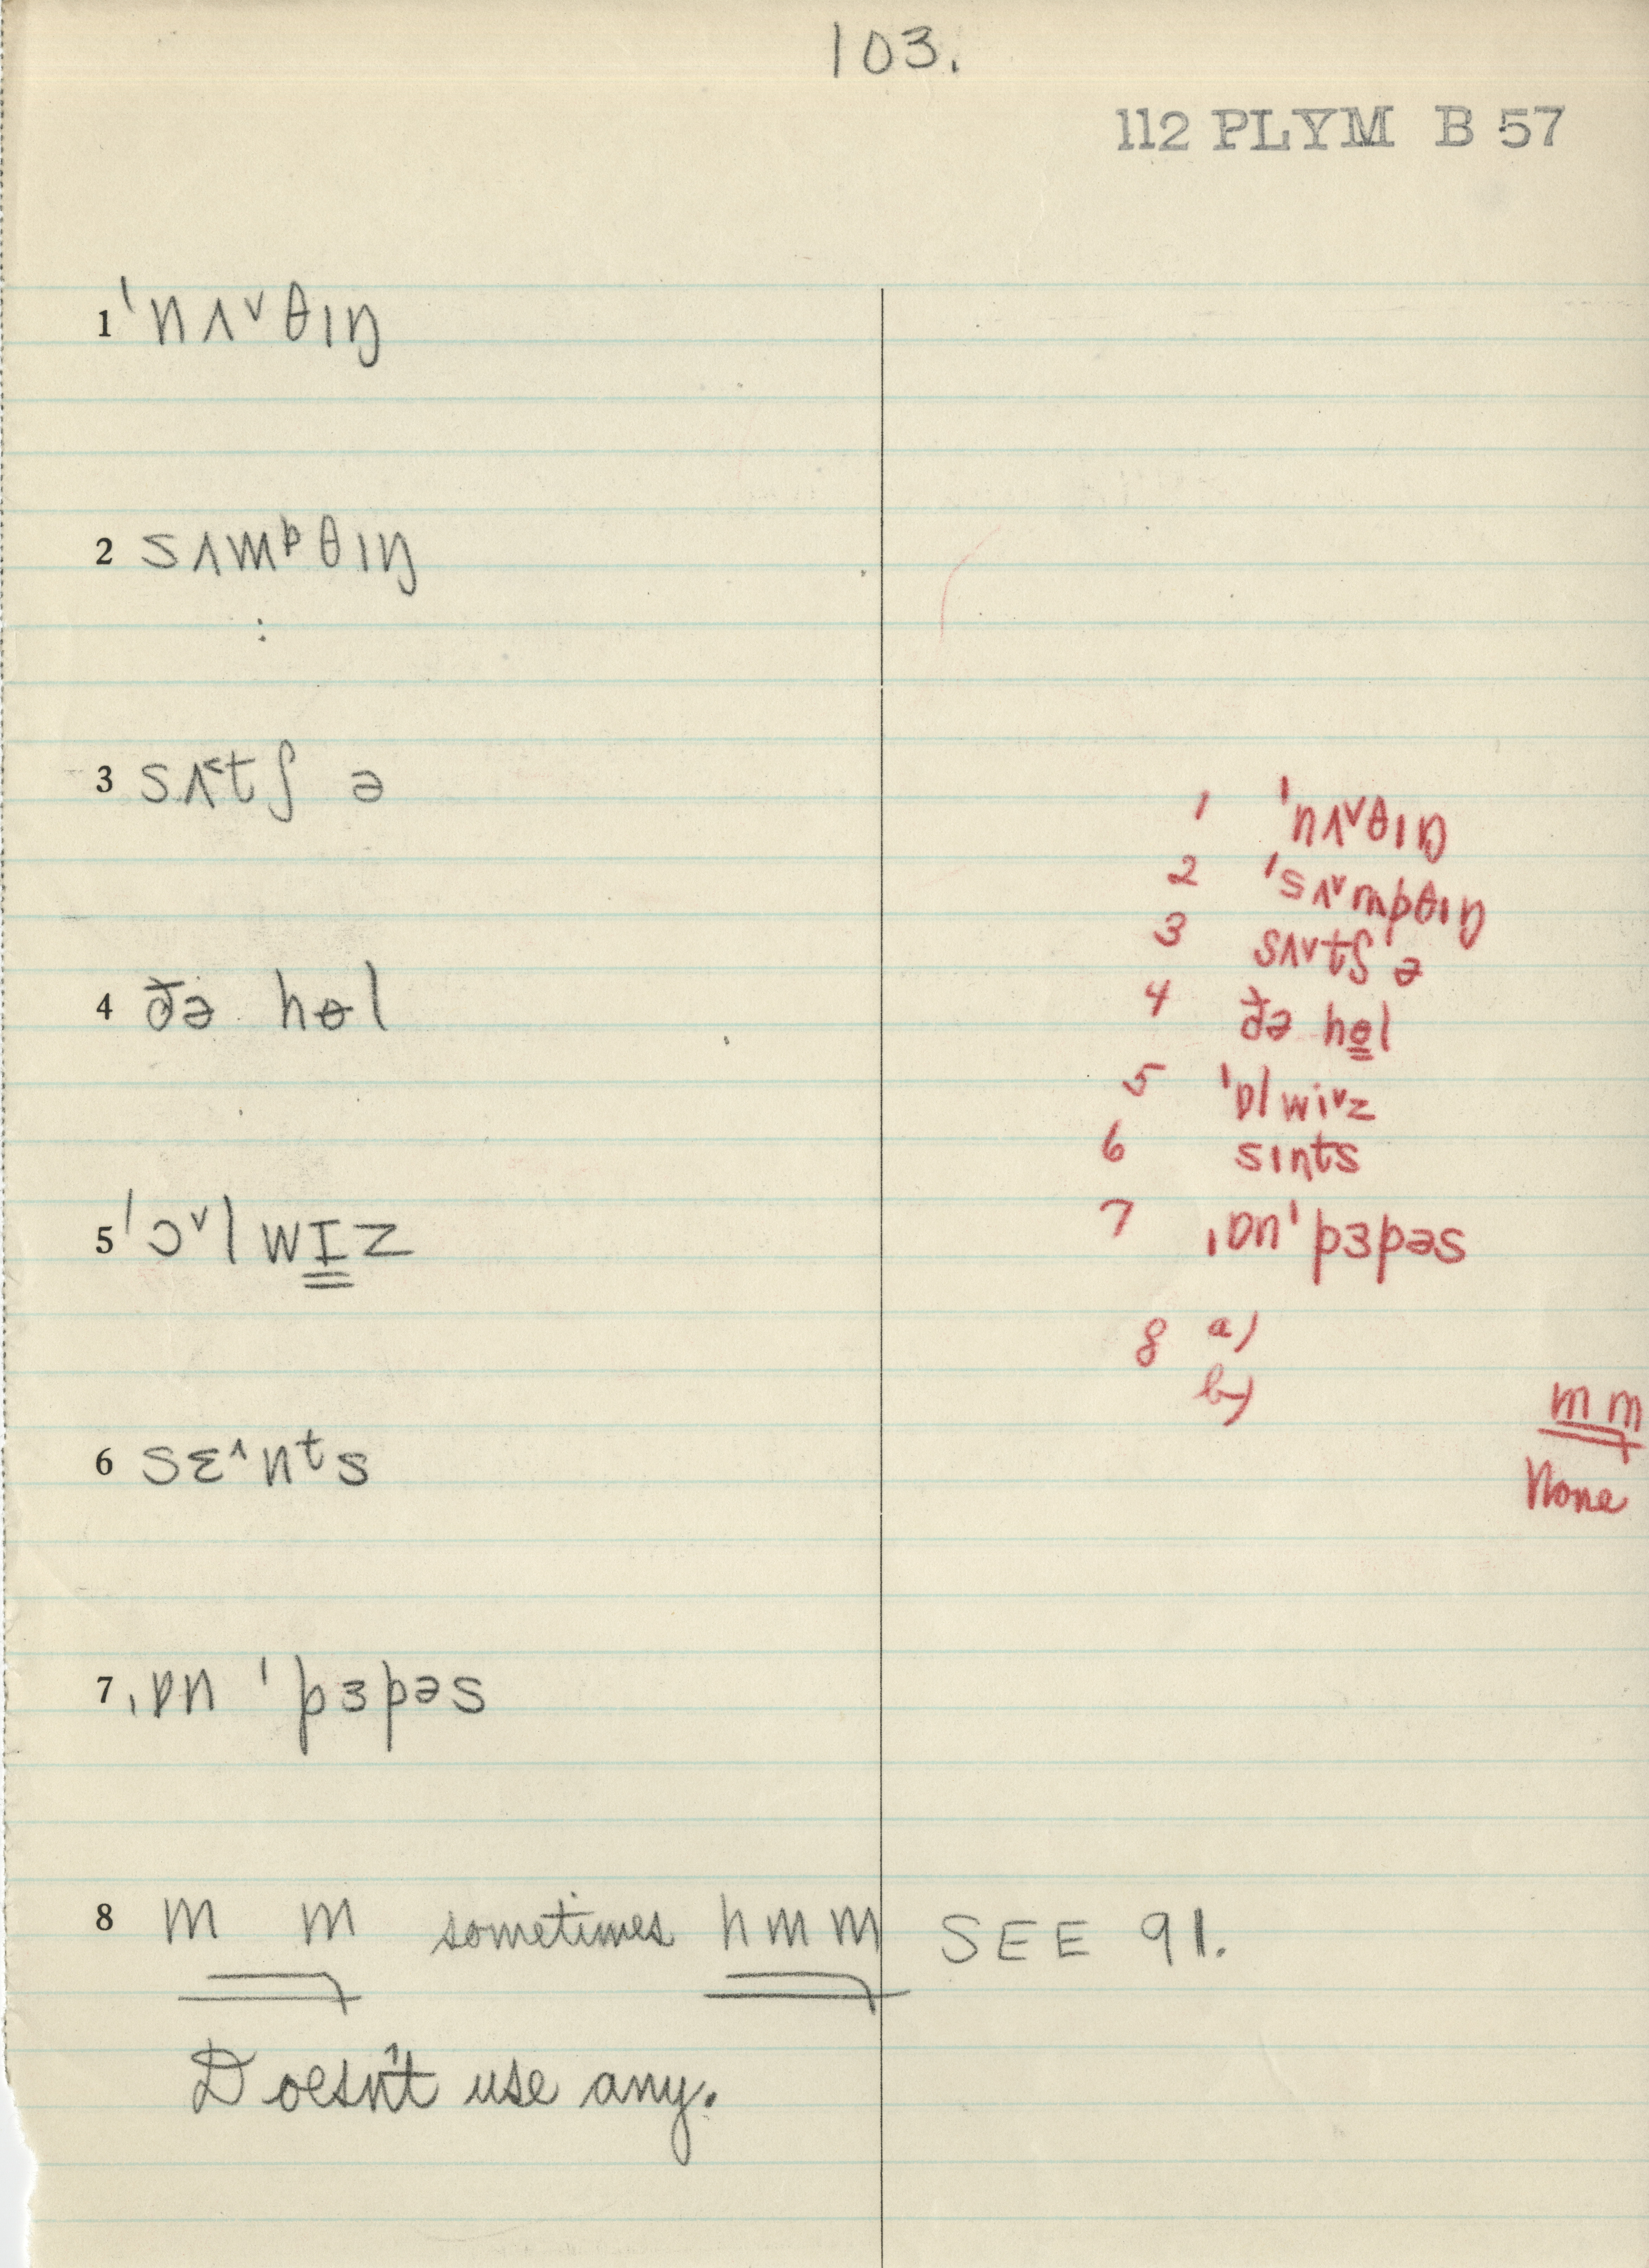 103.
112 PLYM B 57
1 ˈnʌ˅θɪŋ
2 sʌmᵖθɪŋ
3 sʌ˂tʃ ə
4 ðə hɵl
5 ˈɔ˅lwɪz
6 sɛ˄nᵗs
7 ˌɒn ˈpɜpəs
8 m m sometimes hmm SEE 91.
Doesn't use any.
1 ˈnʌ˅θɪŋ
2 ˈsʌ˅mpθɪŋ
3 sʌ˅tʃ ə
4 ðə hɵl
5 ˈɒlwi˅z
6 sɪnts
7 ˌɒnˈpɜpəs
8 a)
b)
m m
None